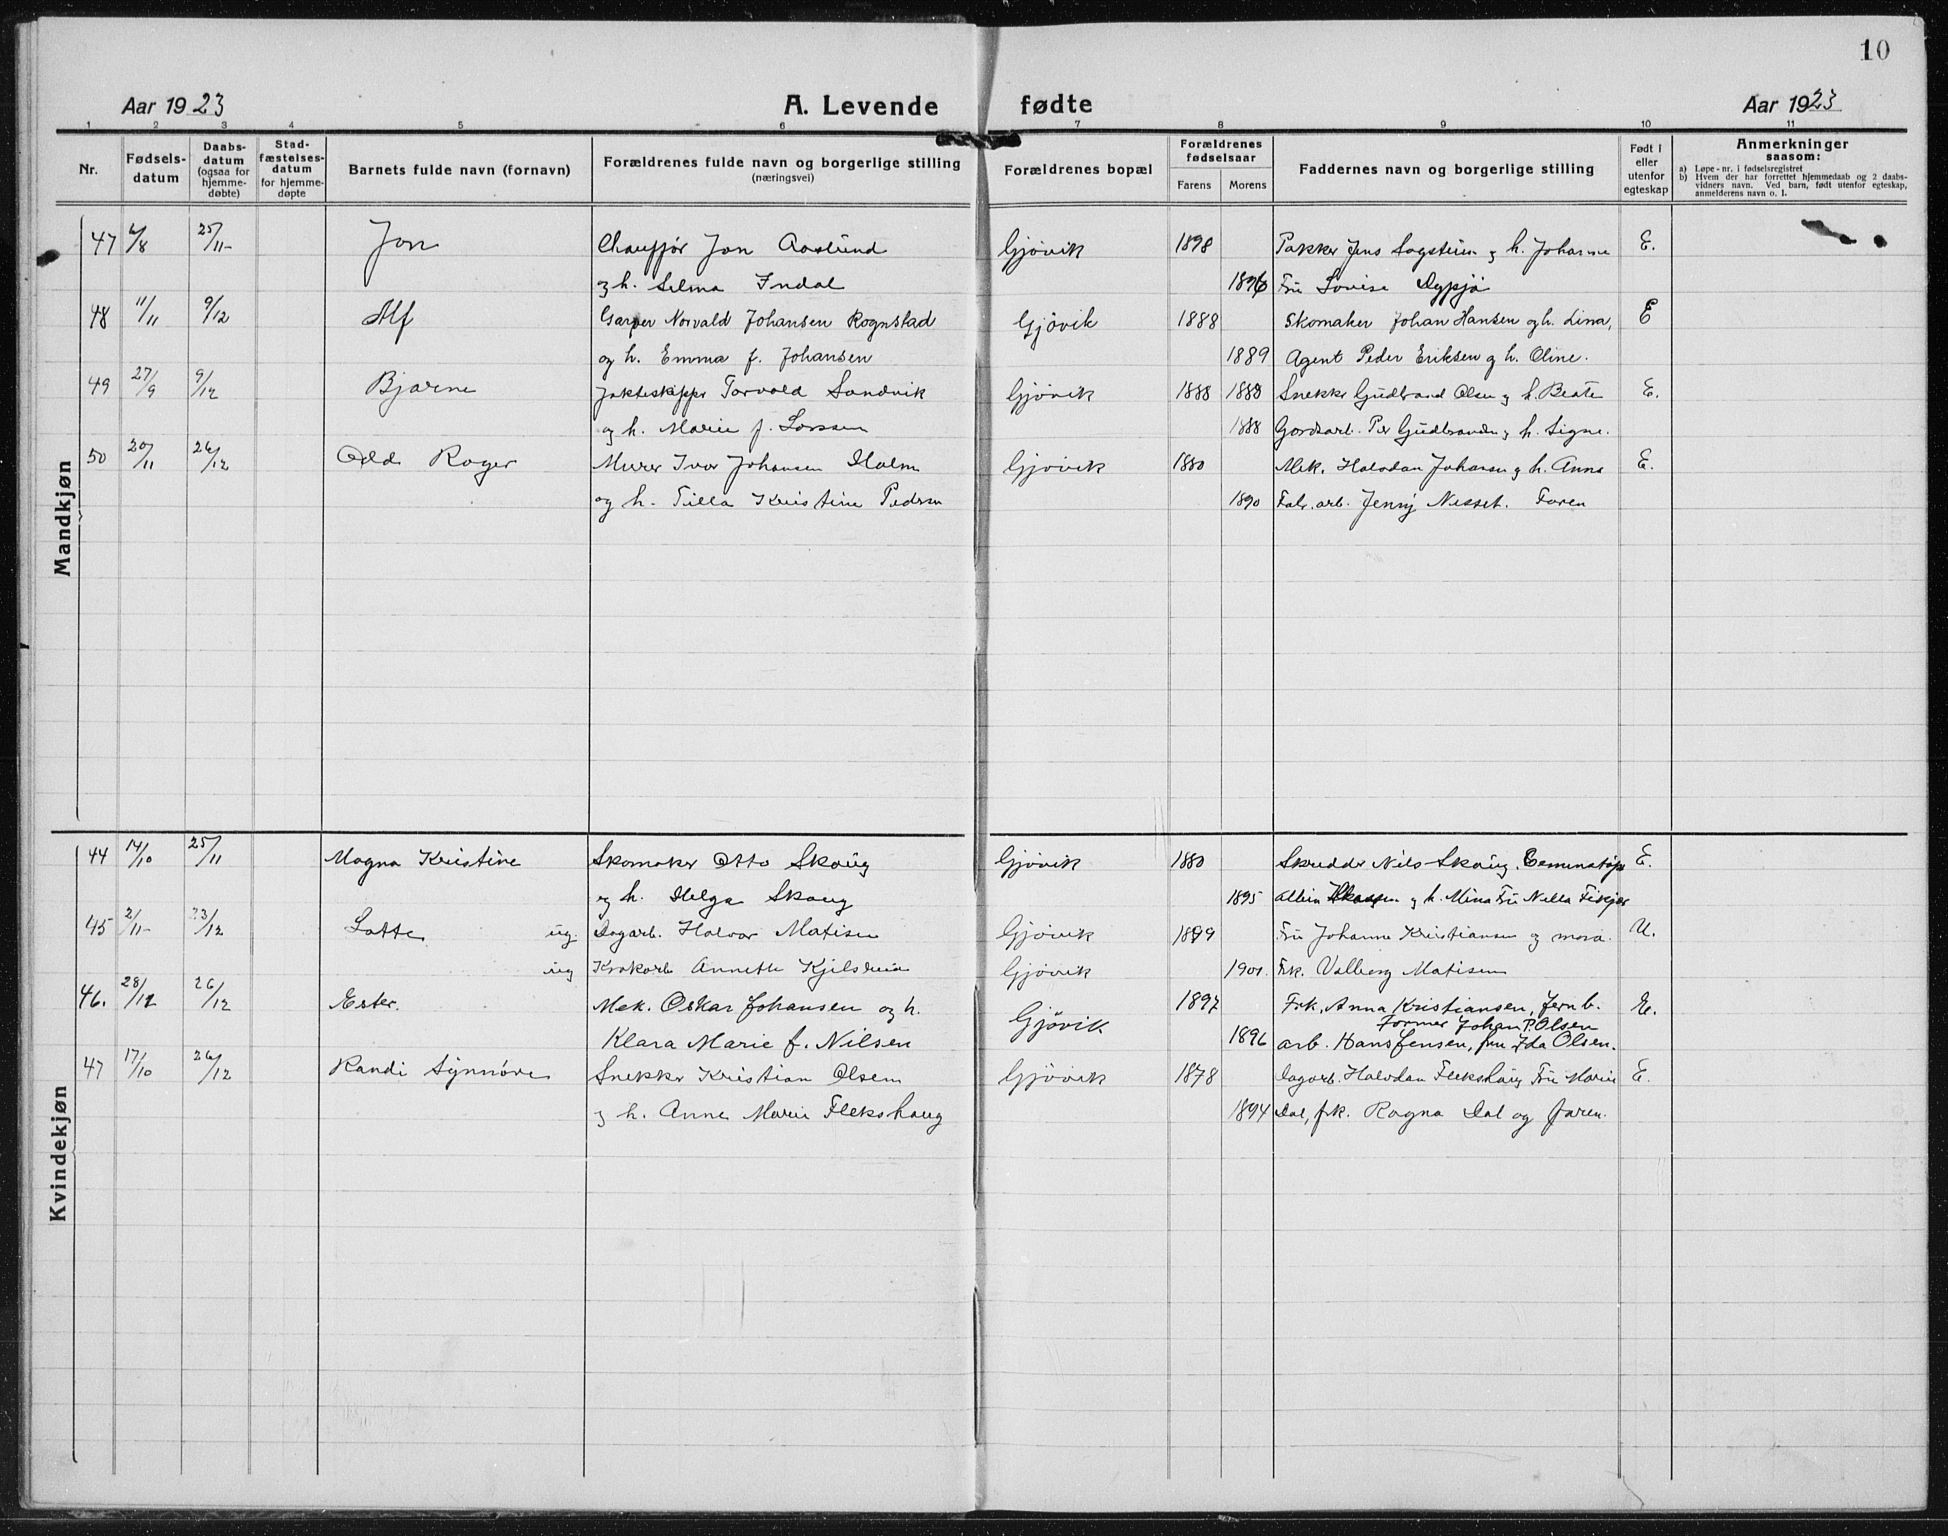 10
Aar 1923 A. Levende fødte Aar 1923
1 2 3 4 5 6 7 8 9 10 11
Nr.
Fødsels-
datum
Daabs-
datum
(ogsaa for
hjemme-
døbte)
Stad-
fæstelses-
datum
for hjemme-
døpte
Barnets fulde navn (fornavn)
Forældrenes fulde navn og borgerlige stilling
(næringsvei)
Forældrenes bopæl
Forældrenes
fødselsaar
Farens Morens
Faddernes navn og borgerlige stilling
Født i
eller
utenfor
egteskap
Anmerkninger
saasom:
a) Løpe-nr. i fødselsregistret
b) Hvem der har forrettet hjemmedaab og 2 daabs-
vidners navn. Ved barn, født utenfor egteskap,
anmelderens navn o. l.
Mandkjøn
47 /8 25/11- Jon Chauffør Jon Aaslund Gjøvik 1898 Pakker Jens Sogstein og h. Johanne E.
og h. Selma Indal 1896 Fru Lovise
48 11/11 9/12 Alf Garver Norvald Johansen Rognstad Gjøvik 1888 Skomaker Johan Hansen og h. Lina, E
og h. Emma f. Johansen 1889 Agent Peder Eriksen og h. Oline.
49 27/9 9/12 Bjarne Jakteskipper Torvald Sandvik Gjøvik 1888 1888 Snekker Gudbrand Olsen og h. Beate E.
og h. Marie f. Larsen 1888 Gardsarb. Per Gudbrandsen og h. Signe.
50 20/11 26/12 Odd Roger Murer Ivar Johansen Holm Gjøvik 1880 Mek. Halvdan Johansen og h. Anna E.
og h. Tilla Kristine Pedersen 1890 Fabr. arb. Jenny Nesset. Faren
Kvindekjøn
44 14/10 25/11 Magna Kristine Skomaker Otto Skaug Gjøvik 1880 Skredder Nils Skaug. E.
og h. Helga Skaug 1895 Albin og h. Mina Fru Nella
45 2/11- 23/12 Lotte ug. Dagarb. Halvor Matisen Gjøvik 1899 Fru Johanne Kristiansen og mora. U.
ug Annette Gjøvik 1901. Frk. Valborg Matisen
46. 28/12 26/12 Ester. Mek. Oskar Johansen og h. Gjøvik 1897 Frk. Anna Kristiansen, Jernb. E.
Former Johan P. Olsen
Klara Marie f. Nilsen 1896 arb. Hans Jensen, fru Ida Olsen.
47 17/10 26/12 Randi Synnøve Snekker Kristian Olsen Gjøvik 1878 Dagarb. Halvdan Flekshaug Fru Marie E.
og h. Anne Marie Flekshaug 1894 Dal, frk. Ragna Dal og faren.